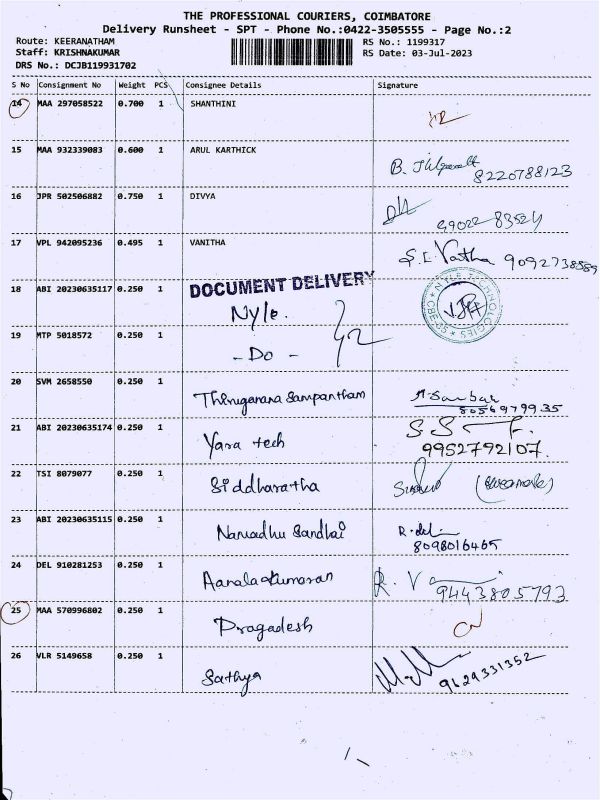 THE PROFESSIONAL COURIERS, COIMBATORE
Delivery Runsheet - SPT - Phone No.:0422-3505555 - Page No.:2
Route: KEERANATHAM RS No.: 1199317
Staff: KRISHNAKUMAR RS Date: 03-Jul-2023
DRS No.: DCJB119931702
S No Consignment No Weight PCS Consignee Details Signature
14 MAA 297058522 0.700 1 SHANTHINI
15 MAA 932339083 0.600 1 ARUL KARTHICK
8220788123
16 JPR 502506882 0.750 1 DIVYA
17 VPL 942095236 0.495 1 VANITHA
9092738589
18 ABI 20230635117 0.250 1 DOCUMENT DELIVERY
Nyle.
NYLE TECHNOLOGIES
19 MTP 5018572 0.250 1
- Do -
20 SVM 2658550 0.250 1
8056979935
21 ABI 20230635174 0.250 1 Yara tech
9952792107.
22 TSI 8079077 0.250 1 Siddharatha
23 ABI 20230635115 0.250 1 Namadhu Sandhai
24 DEL 910281253 0.250 1
R. V
9443805793
25 MAA 570996802 0.250 1 Pragadesh
26 VLR 5149658 0.250 1 Sathya
9629331352